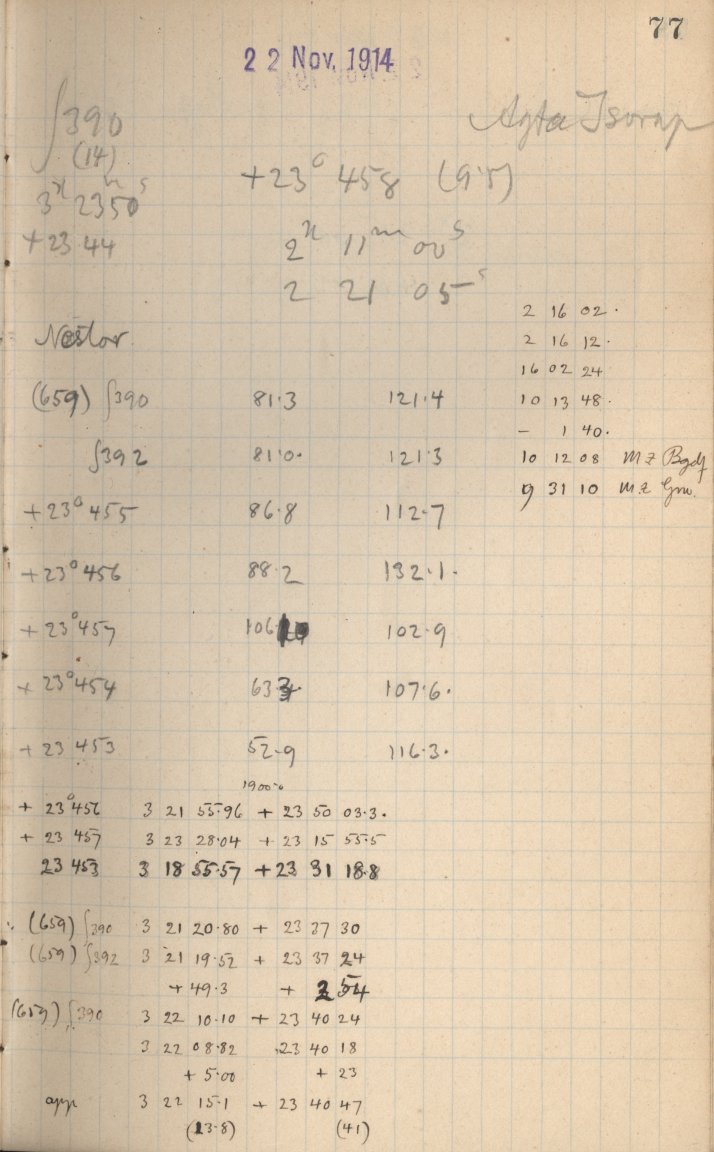 77
22 Nov. 1914
∫390
(14)
3ʰ 23ᵐ 50ˢ
+23.44
+23° 458 (9.5)
2ʰ 11ᵐ 00ˢ
2 21 05ˢ
2 16 02.
2 16 12.
16 02 24
10 13 48.
- 1 40.
10 12 08 MZ
9 31 10 MZ
Nestor.
(659) ∫390 81.3 121.4
∫392 81.0. 121.3
+23° 455 86.8 112.7
+23° 456 88.2 132.1.
+23° 457 106. 102.9
+23° 454 63.3. 107.6.
+23 453 52.9 116.3.
1900.0
+ 23° 456 3 21 55.96 + 23 50 03.3.
+ 23 457 3 23 28.04 + 23 15 55.5
23 453 3 18 55.57 + 23 31 18.8
(659) ∫390 3 21 20.80 + 23 37 30
(659) ∫392 3 21 19.52 + 23 37 24
+ 49.3 + 2 54
(659) ∫390 3 22 10.10 + 23 40 24
3 22 08.82 23 40 18
+ 5.00 + 23
app 3 22 15.1 + 23 40 47
(13.8) (41)